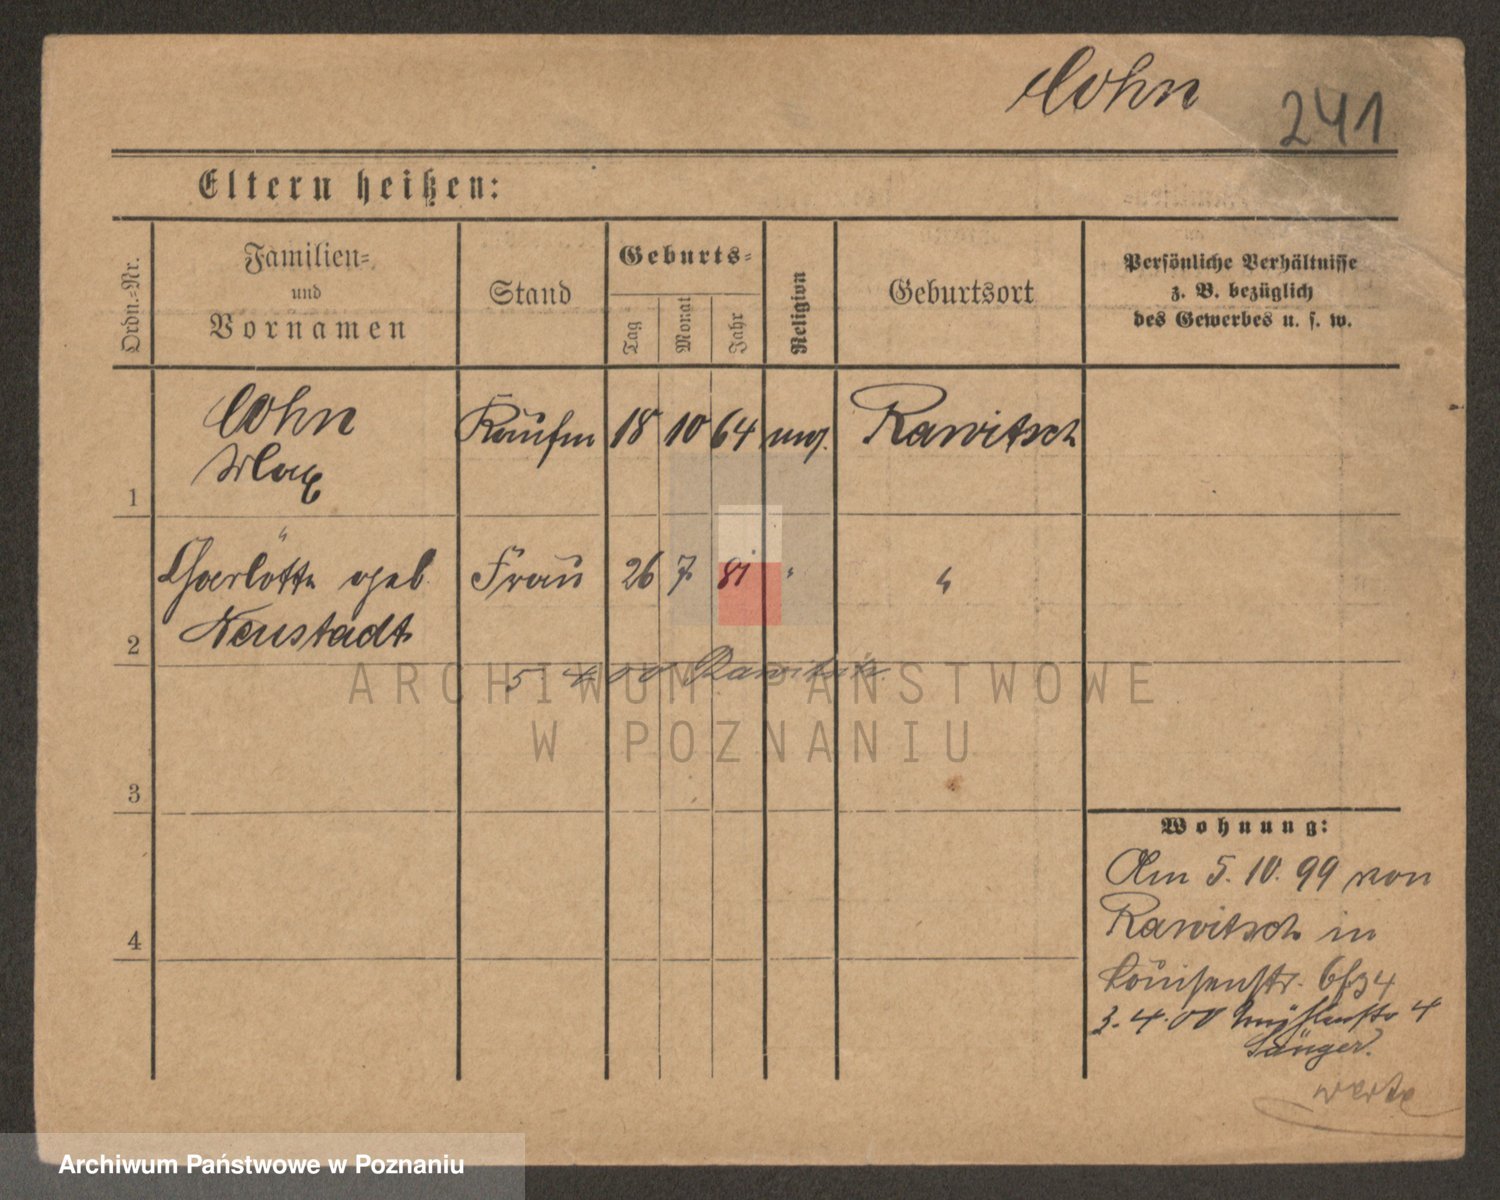 Cohn
241
Eltern heißen:
Ordn.-Nr.
Familien-
und
Vornamen
Stand
Geburts-
Tag
Monat
Jahr
Religion
Geburtsort
Persönliche Verhältnisse
z. B. bezüglich
des Gewerbes u. s. w.
1
Cohn
Max
Kaufm
18
10
64
mos.
Rawitsch
2
"
Charlotte geb
Neustadt
Frau
26
7
81
"
"
5 4 00 Rawitsch
3
4
Wohnung:
Am 5. 10. 99 von
Rawitsch in
Louisenstr.
3. 4. 00 4
Sänger.
ARCHIWUM PAŃSTWOWE
W POZNANIU
Archiwum Państwowe w Poznaniu